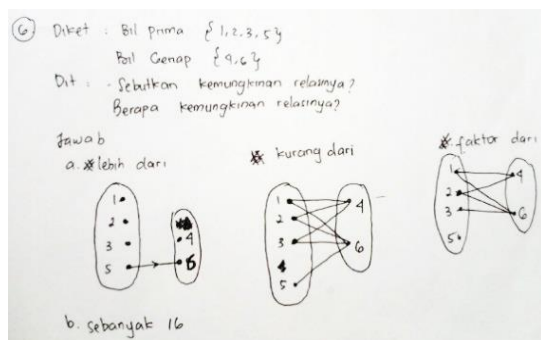 6 Diket : Bil prima {1,2,3,5}
Bil Genap {4,6}
Dit : - Sebutkan kemungkinan relasinya?
Berapa kemungkinan relasinya?
Jawab
a. lebih dari
kurang dari
faktor dari
1
2
3
5
4
6
1
2
3
4
5
4
6
1
2
3
5
4
6
b. sebanyak 16